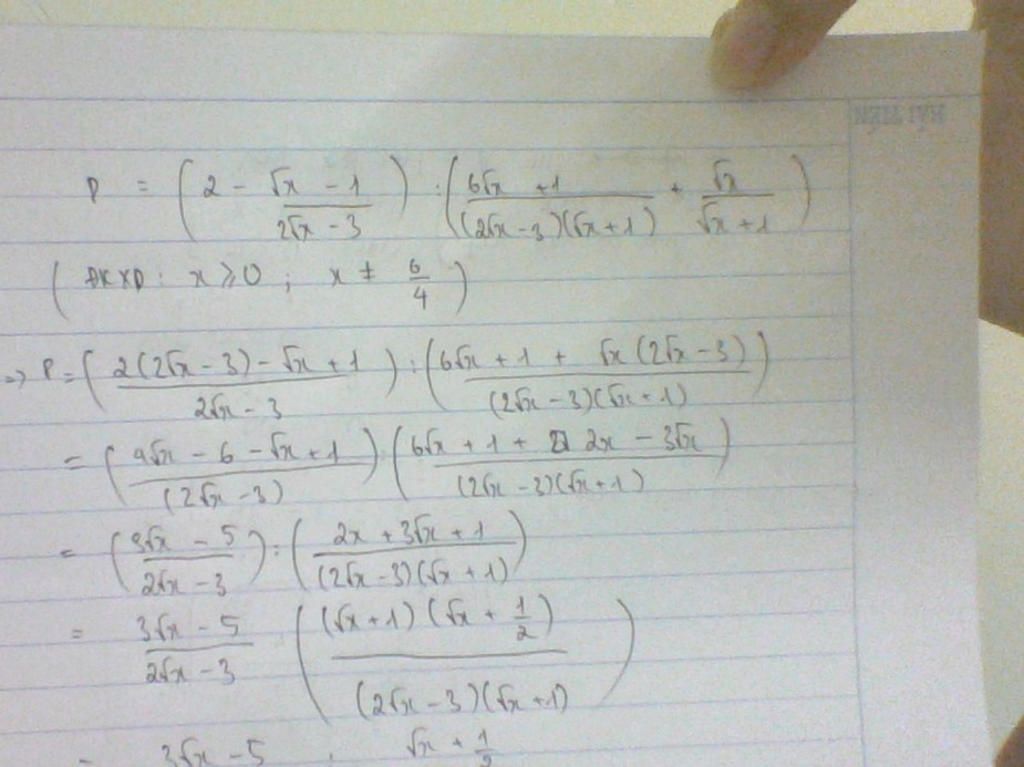 P = ( 2 - (√x - 1)/(2√x - 3) ) : ( (6√x + 1)/((2√x - 3)(√x + 1)) + √x/(√x + 1) )
( ĐKXĐ : x ⩾ 0 ; x ≠ 6/4 )
=> P = ( (2(2√x - 3) - √x + 1)/(2√x - 3) ) : ( (6√x + 1 + √x(2√x - 3))/((2√x - 3)(√x + 1)) )
= ( (4√x - 6 - √x + 1)/((2√x - 3)) ) : ( (6√x + 1 + 2x - 3√x)/((2√x - 3)(√x + 1)) )
= ( (3√x - 5)/(2√x - 3) ) : ( (2x + 3√x + 1)/((2√x - 3)(√x + 1)) )
= (3√x - 5)/(2√x - 3) ( ((√x + 1)(√x + 1/2))/((2√x - 3)(√x + 1)) )
= 3√x - 5 : √x + 1/2